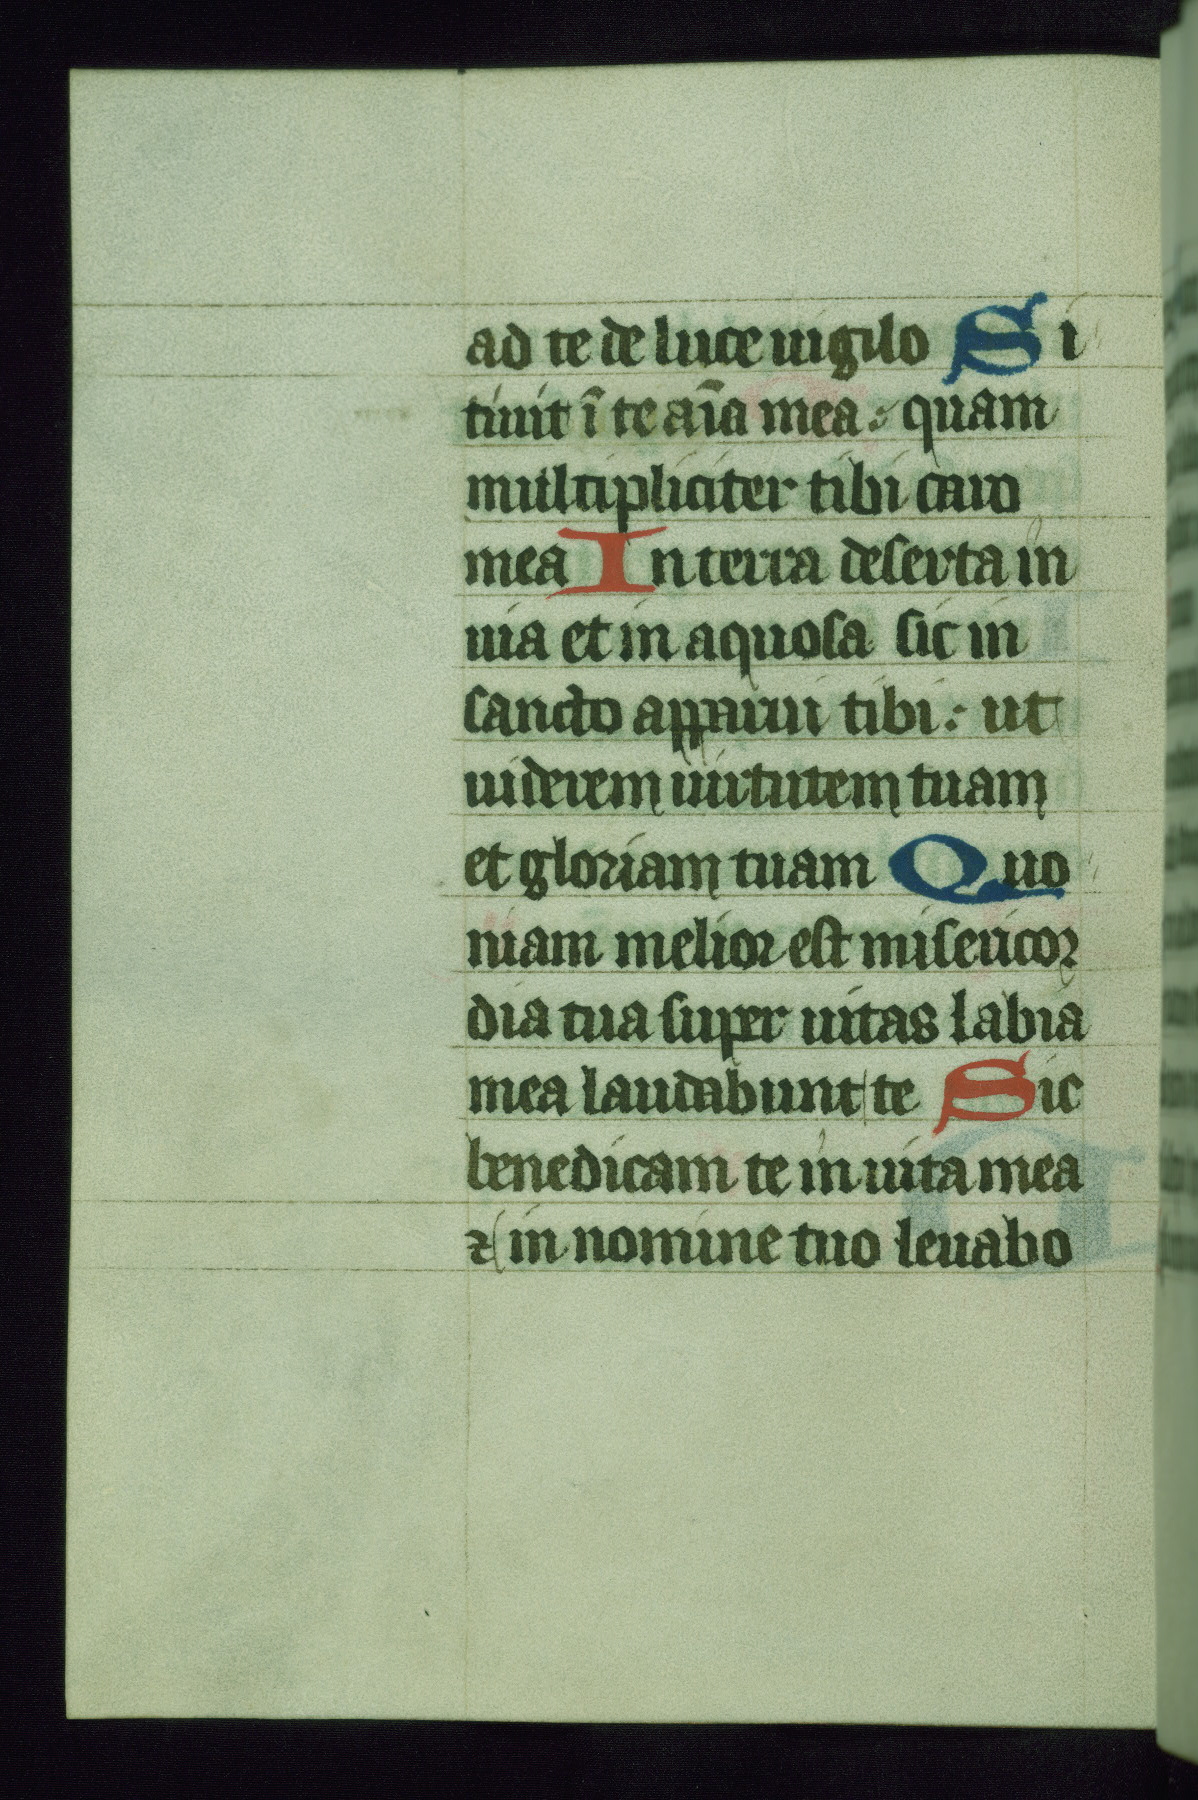 ad te de luce uigilo Si
tiuit ī te aīa mea : quam
multipliciter tibi caro
mea In terra deserta in
uia et in aquosa sic in
sancto apparui tibi : ut
uiderem uirtutem tuam
et gloriam tuam Quo
niam melior est misericor
dia tua super uitas labia
mea laudabunt te Sic
benedicam te in uita mea
⁊ in nomine tuo leuabo